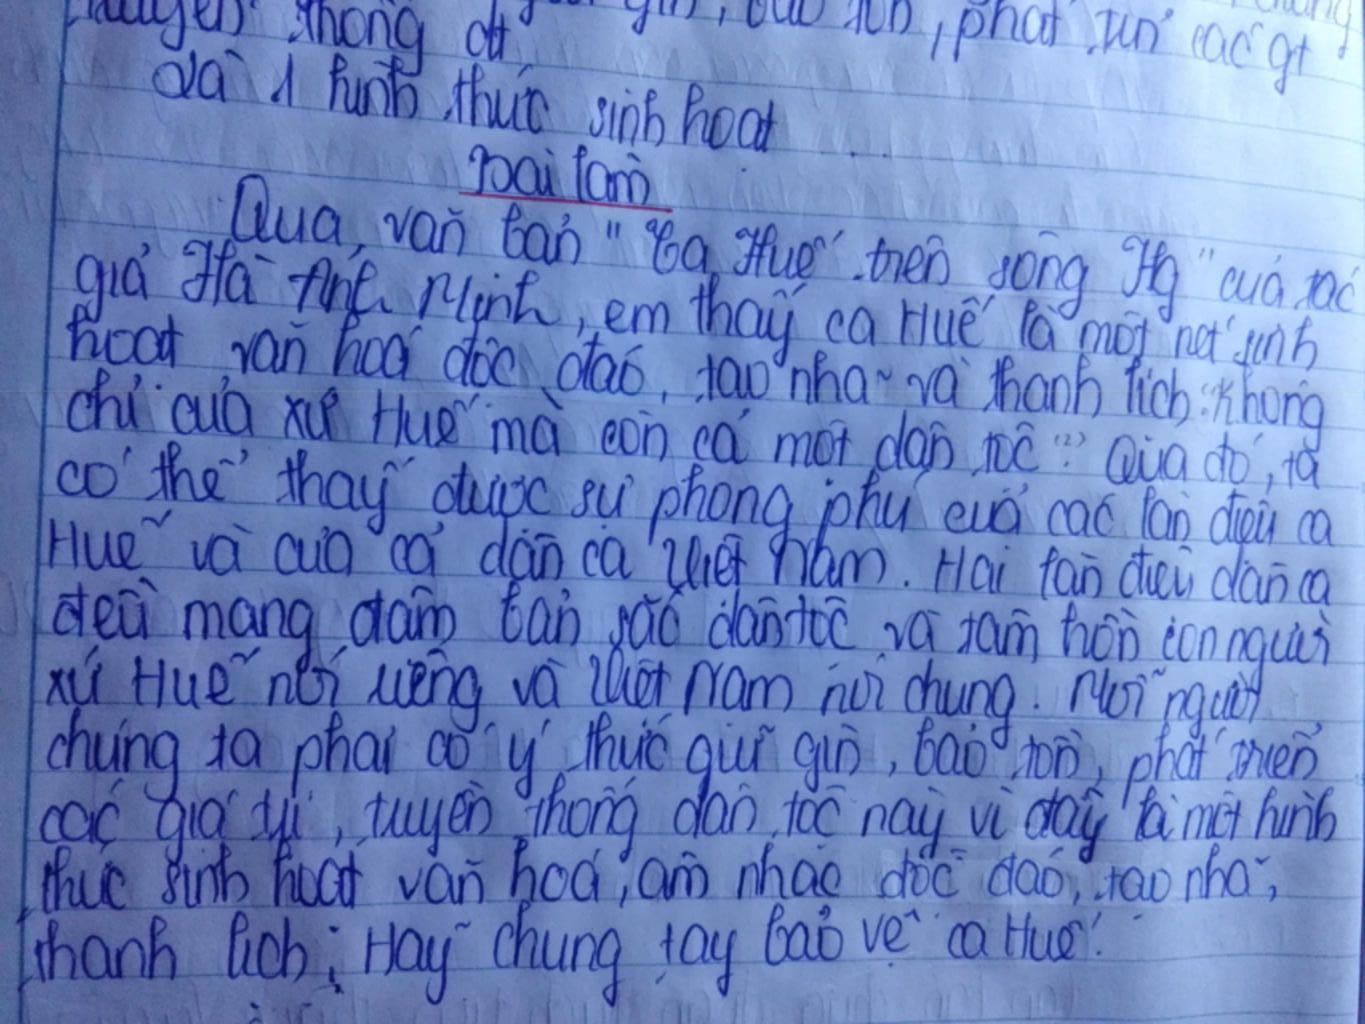 truyền thống dt giữ gìn, bảo tồn, phát triển các gt
là 1 hình thức sinh hoạt
Bài làm
Qua văn bản "Ca Huế trên sông Hg" của tác
giả Hà Ánh Minh, em thấy ca Huế là một nét sinh
hoạt văn hoá độc đáo, tao nhã và thanh lịch "không
chỉ của xứ Huế mà còn cả một dân tộc" (2). Qua đó, ta
có thể thấy được sự phong phú của các làn điệu ca
Huế và của cả dân ca Việt Nam. Hai làn điệu dân ca
đều mang đậm bản sắc dân tộc và tâm hồn con người
xứ Huế nói riêng và Việt Nam nói chung. Mỗi người
chúng ta phải có ý thức giữ gìn, bảo tồn, phát triển
các giá trị, truyền thống dân tộc này vì đây là một hình
thức sinh hoạt văn hoá, âm nhạc độc đáo, tao nhã,
thanh lịch; Hãy chung tay bảo vệ ca Huế!